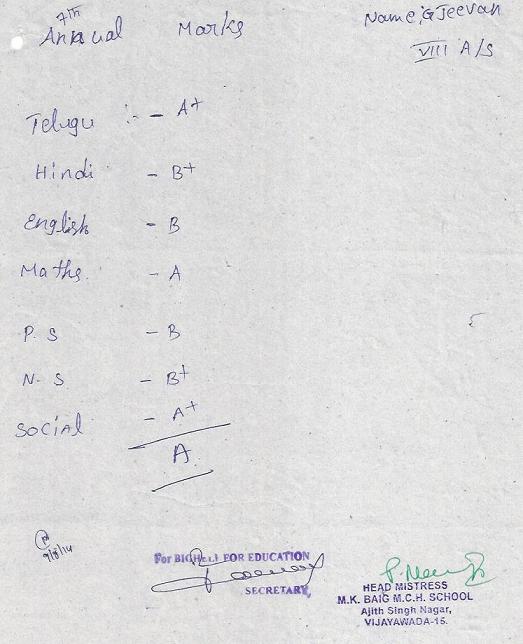 7th
Annual Marks
Name: G Jeevan
VIII A/S
Telugu :- - A+
Hindi - B+
English - B
Maths. - A
P. S - B
N. S - B+
Social - A+
A
9/8/14
For BIGHELP FOR EDUCATION
SECRETARY,
HEAD MISTRESS
M.K. BAIG M.C.H. SCHOOL
Ajith Singh Nagar,
VIJAYAWADA-15.